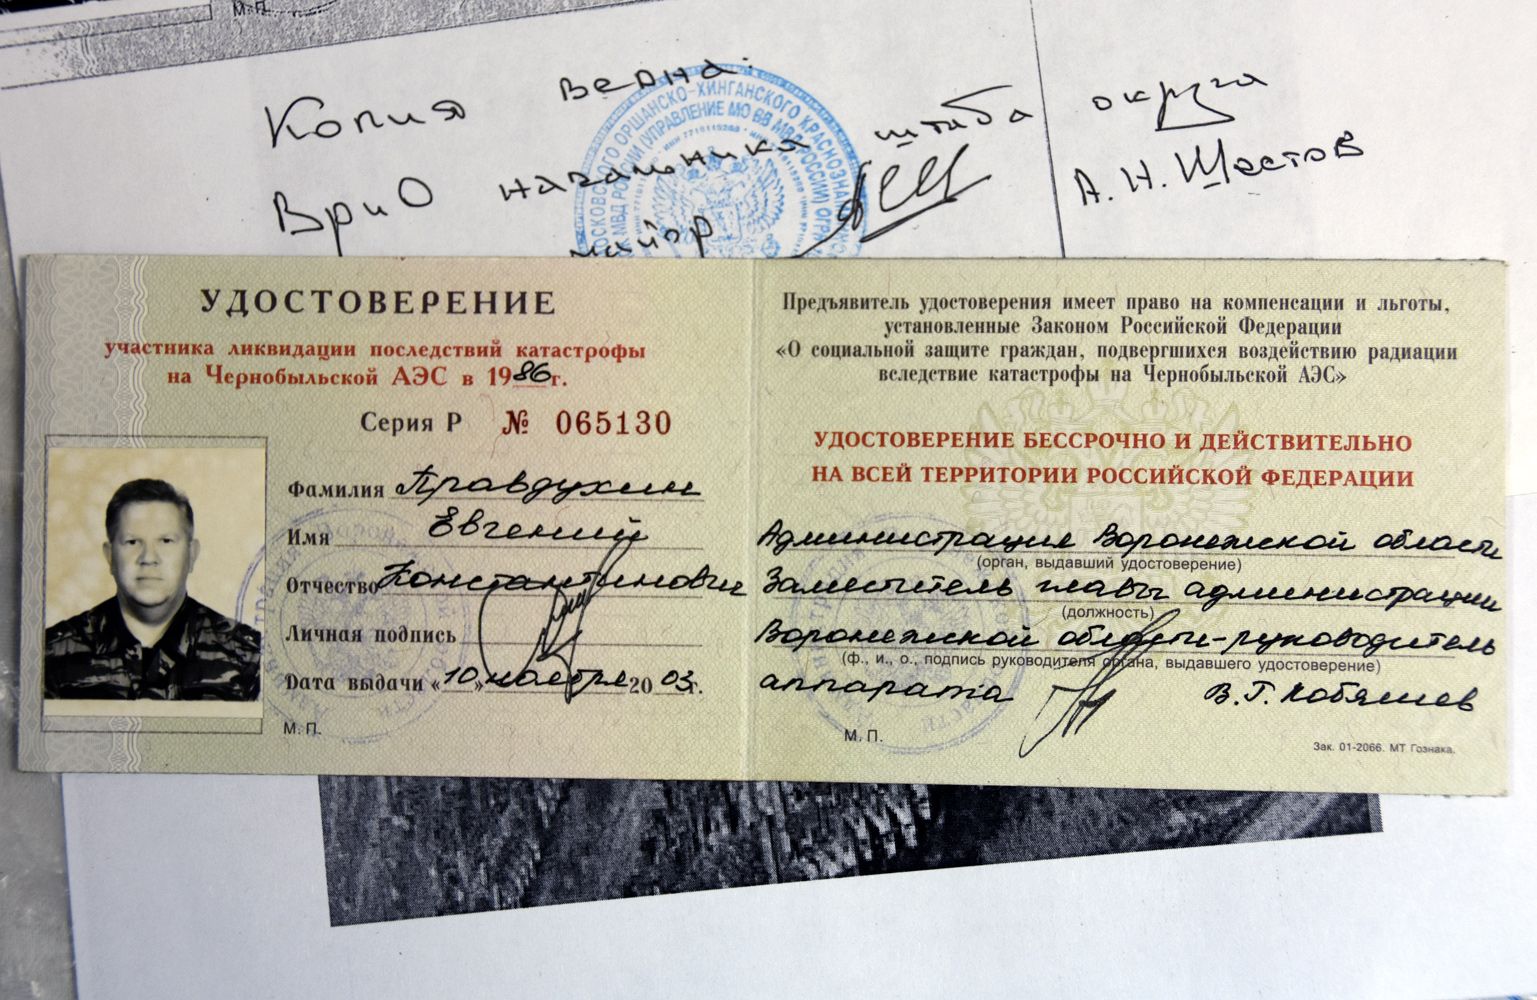 М. П.
Копия верна:
ВриО начальника штаба округа
майор А. Н. Шестов
УДОСТОВЕРЕНИЕ
участника ликвидации последствий катастрофы
на Чернобыльской АЭС в 1986г.
Серия Р № 065130
Фамилия Правдухин
Имя Евгений
Отчество Константинович
Личная подпись
Дата выдачи «10» ноября 2003г.
М. П.
Предъявитель удостоверения имеет право на компенсации и льготы,
установленные Законом Российской Федерации
«О социальной защите граждан, подвергшихся воздействию радиации
вследствие катастрофы на Чернобыльской АЭС»
УДОСТОВЕРЕНИЕ БЕССРОЧНО И ДЕЙСТВИТЕЛЬНО
НА ВСЕЙ ТЕРРИТОРИИ РОССИЙСКОЙ ФЕДЕРАЦИИ
Администрация Воронежской области
(орган, выдавший удостоверение)
Заместитель главы администрации
(должность)
Воронежской области-руководитель
(ф., и., о., подпись руководителя органа, выдавшего удостоверение)
аппарата В.Г. Кобяшев
М. П.
Зак. 01-2066. МТ Гознака.